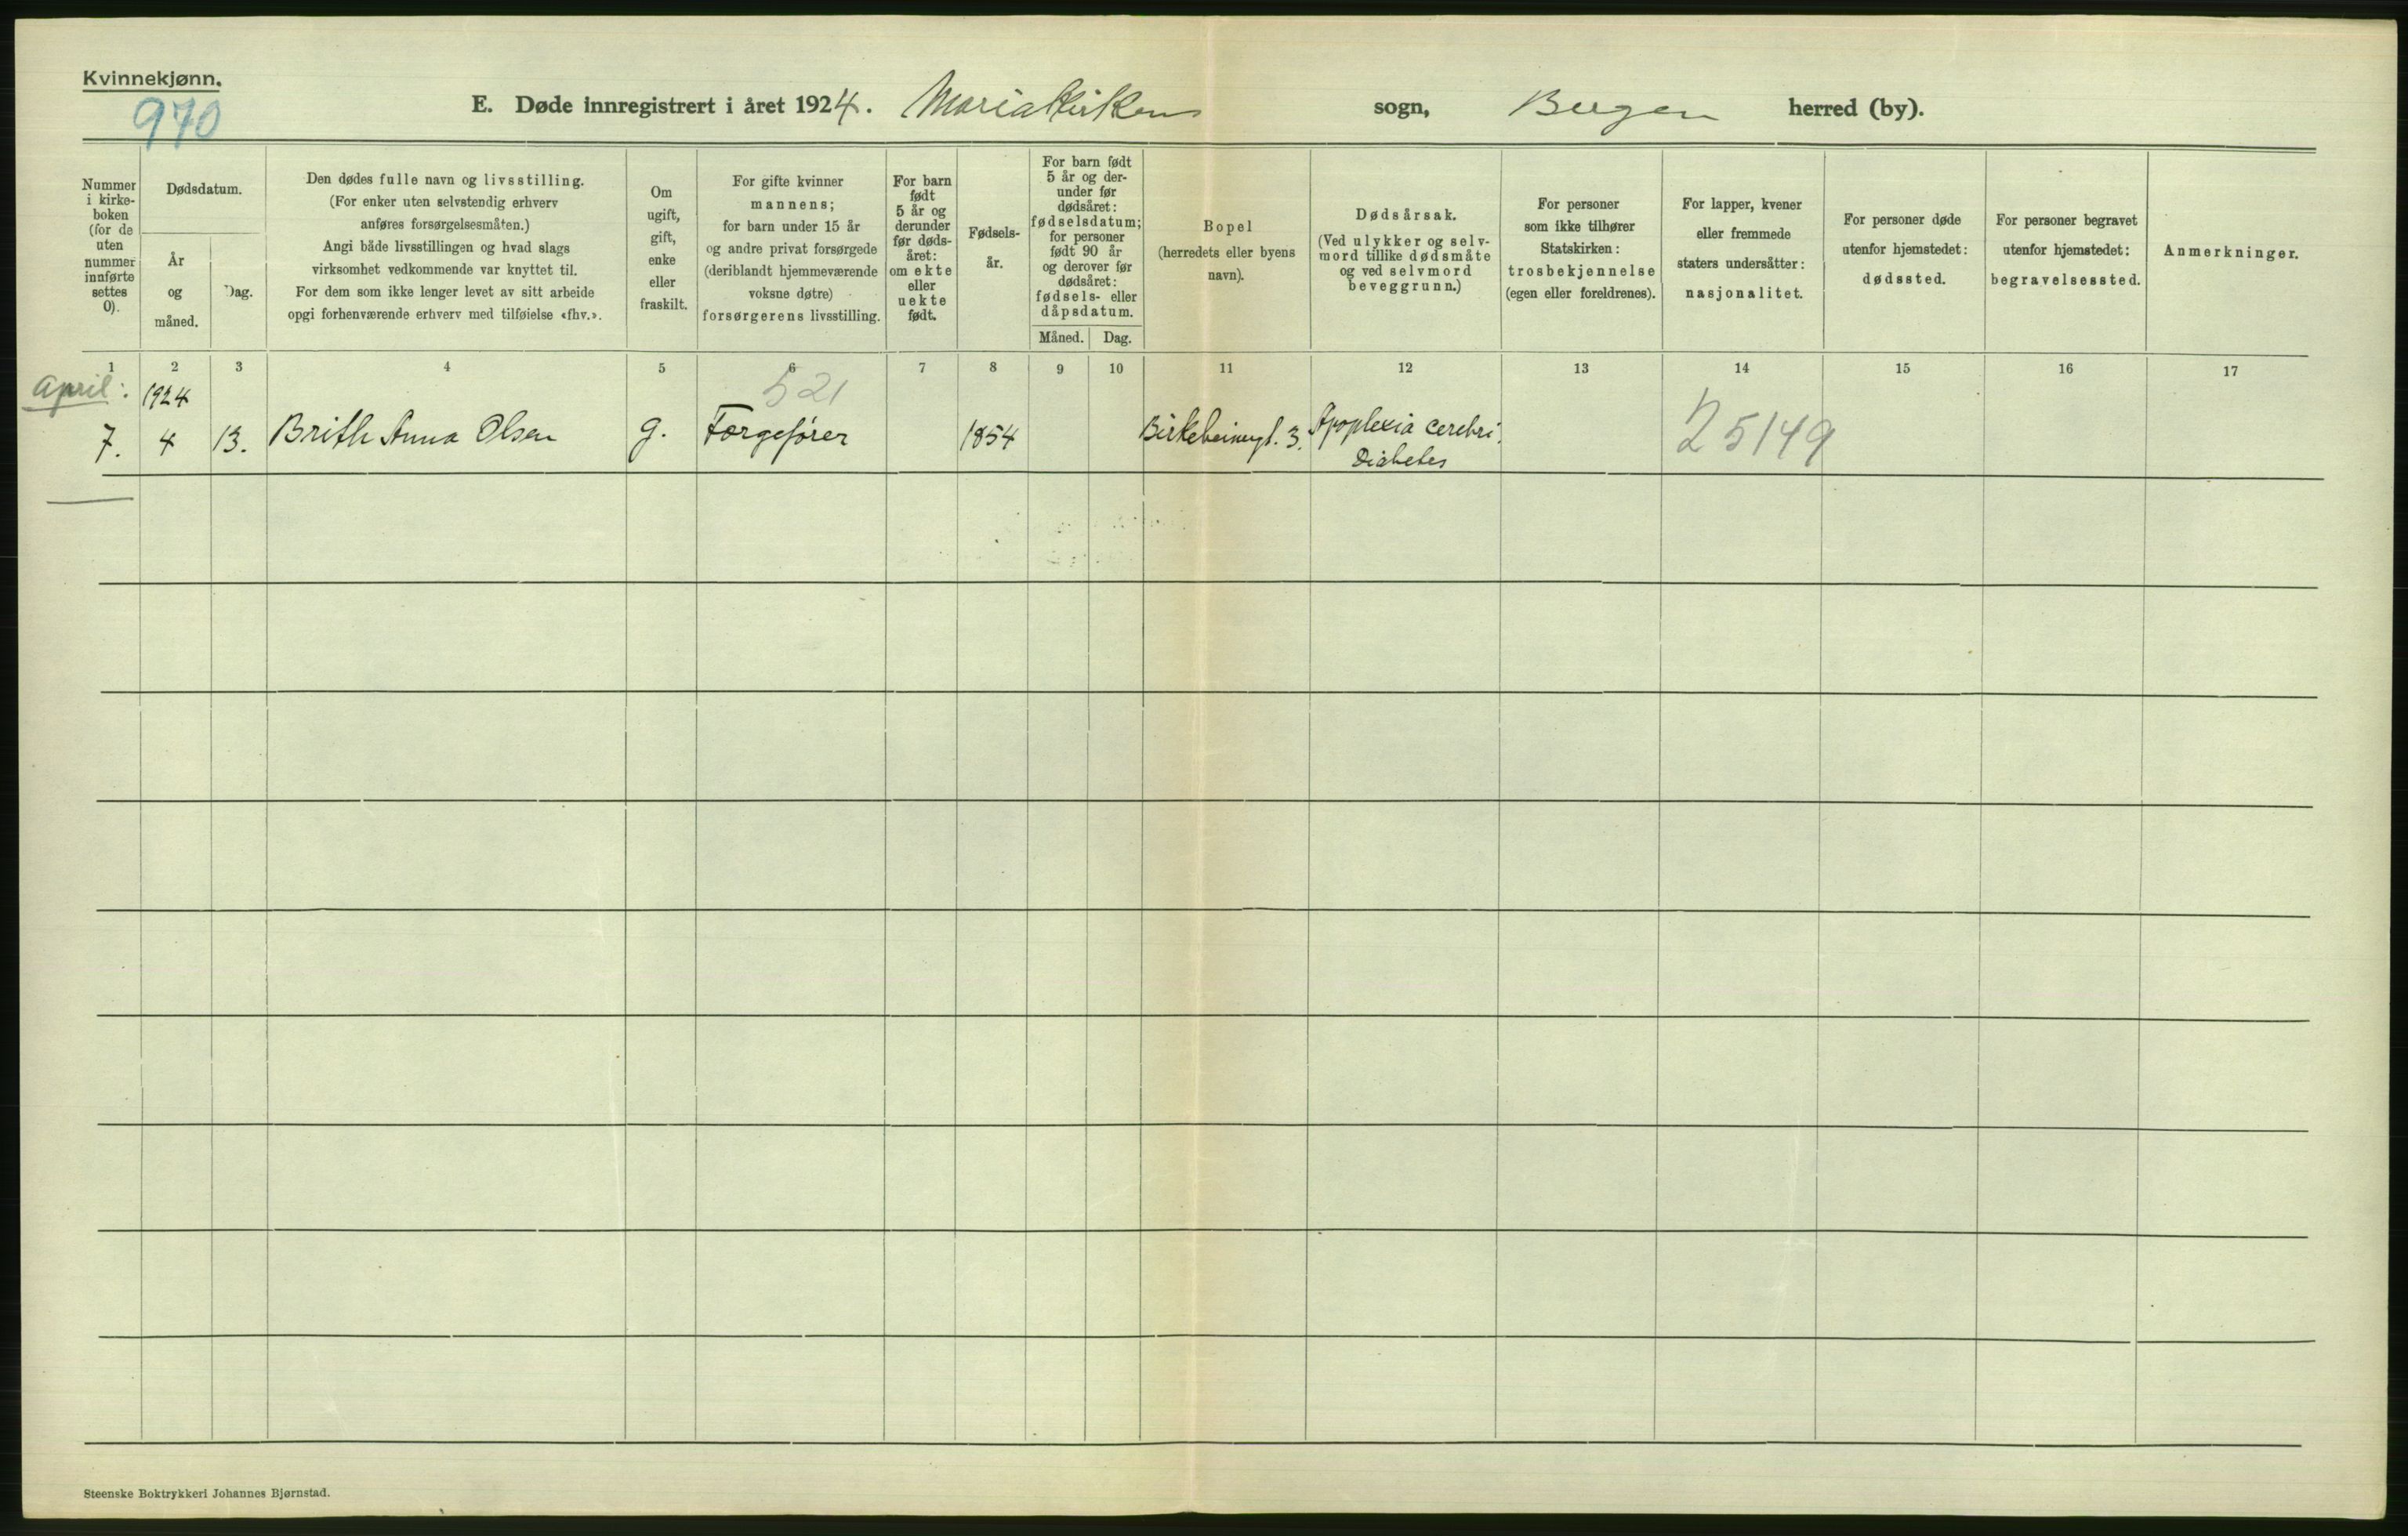 Kvinnekjønn.
970
E. Døde innregistrert i året 1924. Mariakirkens sogn, Bergen herred (by).
Nummer
i kirke-
boken
(for de
uten
nummer
innførte
settes
0).
Dødsdatum.
År
og
måned.
Dag.
Den dødes fulle navn og livsstilling.
(For enker uten selvstendig erhverv
anføres forsørgelsesmåten.)
Angi både livsstillingen og hvad slags
virksomhet vedkommende var knyttet til.
For dem som ikke lenger levet av sitt arbeide
opgi forhenværende erhverv med tilføielse «fhv.».
Om
ugift,
gift,
enke
eller
fraskilt.
For gifte kvinner
mannens;
for barn under 15 år
og andre privat forsørgede
(deriblandt hjemmeværende
voksne døtre)
forsørgerens livsstilling.
For barn
født
5 år og
derunder
før døds-
året:
om ekte
eller
uekte
født.
Fødsels-
år.
For barn født
5 år og der-
under før
dødsåret:
fødselsdatum;
for personer
født 90 år
og derover før
dødsåret:
fødsels- eller
dåpsdatum.
Måned. Dag.
Bopel
(herredets eller byens
navn).
Dødsårsak.
(Ved ulykker og selv-
mord tillike dødsmåte
og ved selvmord
beveggrunn.)
For personer
som ikke tilhører
Statskirken:
trosbekjennelse
(egen eller foreldrenes).
For lapper, kvener
eller fremmede
staters undersåtter:
nasjonalitet.
For personer døde
utenfor hjemstedet:
dødssted.
For personer begravet
utenfor hjemstedet:
begravelsessted.
Anmerkninger.
1 2 3 4 5 6 7 8 9 10 11 12 13 14 15 16 17
April: 1924 521
7. 4 13. Brith Anna Olsen g. Færgefører 1854 Birkebeinergt. 3. Apoplexia cerebri. 25149
Diabetes
Steenske Boktrykkeri Johannes Bjørnstad.